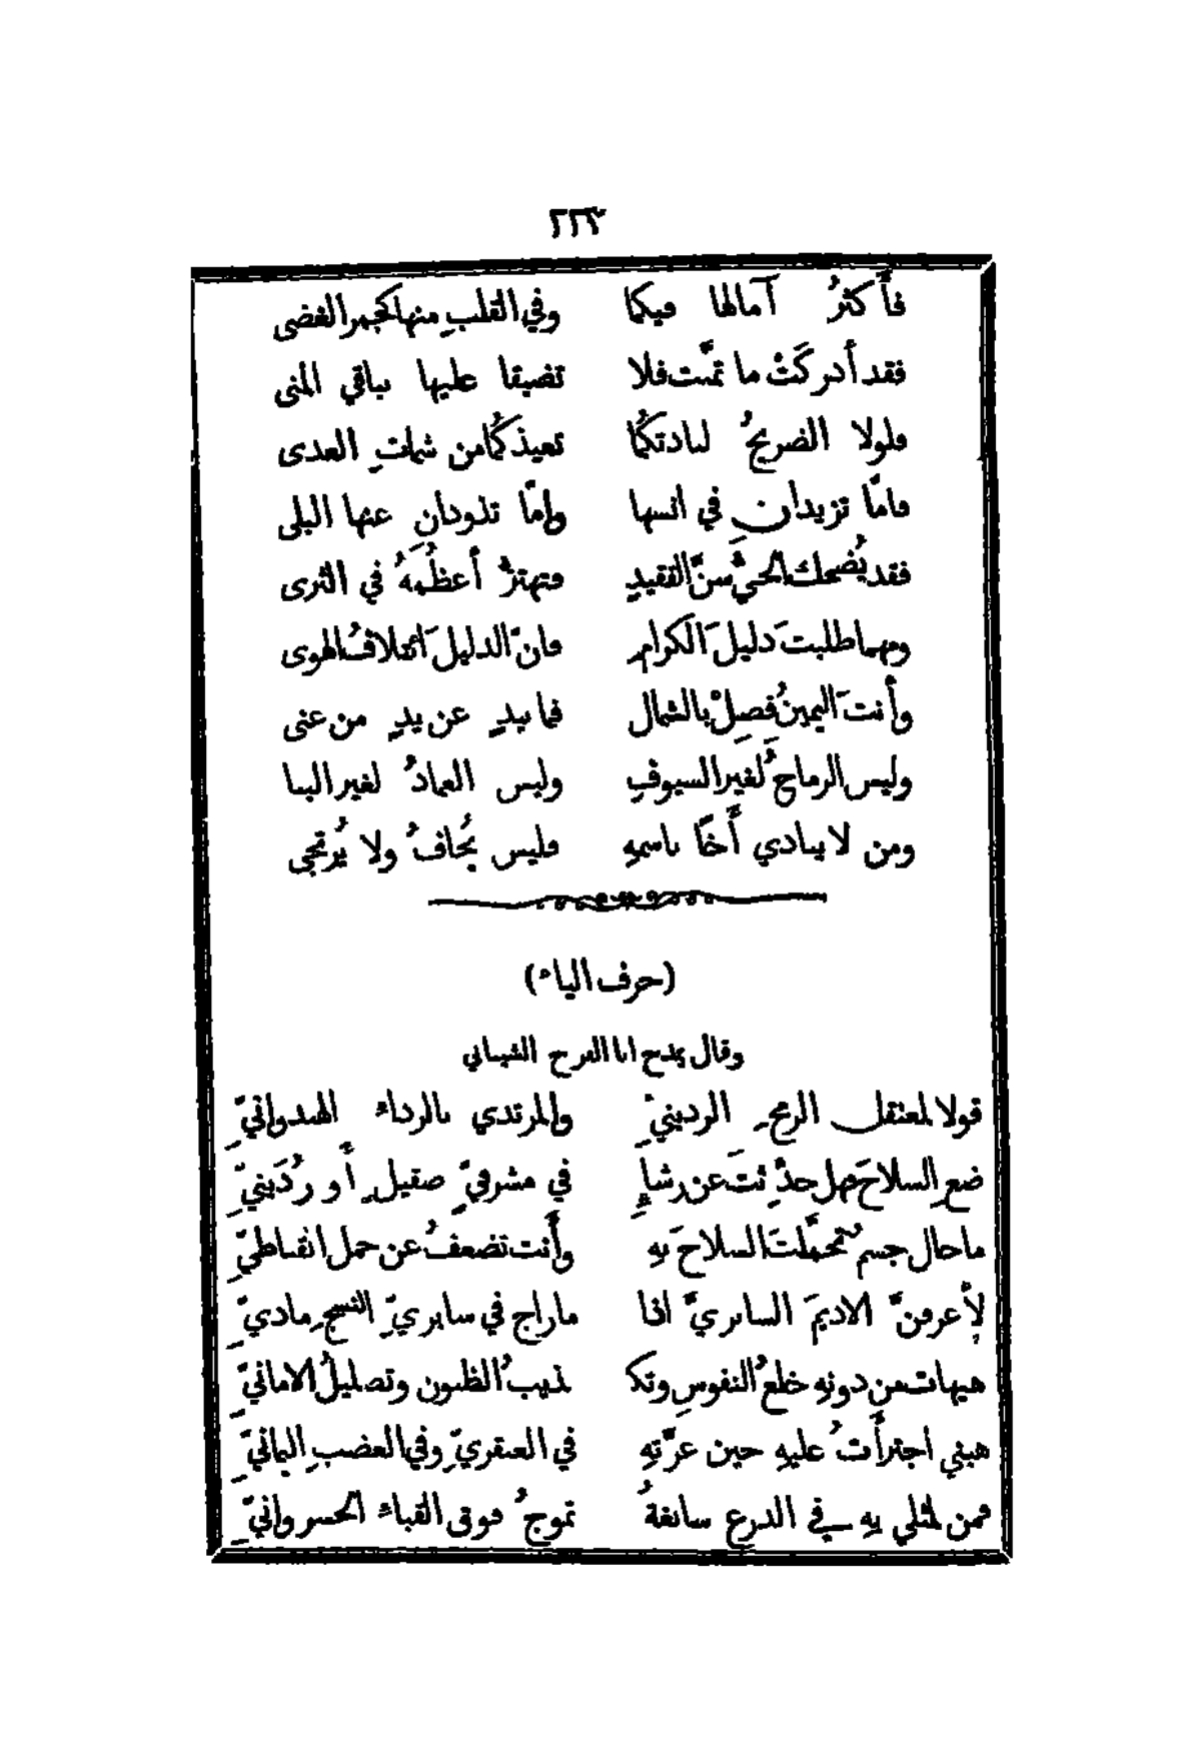 ٢٢٣
فأكثرُ آمالها فيكما وفي القلبِ منها كجمر الغضى
فقد أدركَتْ ما تمنَّت فلا تضيقا عليها بباقي المنى
فلولا الضريحُ لنادتكُما تعيذكُما من شماتِ العدى
فامَّا تزيدانِ في انسها وامَّا تذودانِ عنها البلى
فقد يُضحك الحيُّ سنَّ الفقيدِ فتهتزُّ أعظُمَهُ في الثرى
ومهما طلبتَ دليلَ الكرامِ فانَّ الدليلَ ائتلافُ الهوى
وأنتَ اليمينُ فصِلْ بالشمال فما بيدٍ عن يدٍ من غنى
وليس الرماحُ لغيرِ السيوفِ وليس العمادُ لغير البنا
ومن لا ينادي أخًا باسمهِ فليس يُخافُ ولا يُرتجى
(حرف الياء)
وقال يمدح ابا الفرح الشيباني
قولا لمعتقل الرمحِ الردينيِّ والمرتدي بالرداء الهندوانيِّ
ضعِ السلاحَ فهل حدِّثتَ عن رشاءٍ في مشرفيٍّ صقيلٍ أو رُدَينيِّ
ما حال جسمٍ تحمَّلتَ السلاحَ بهِ وأنت تضعفُ عن حمل القباطيِّ
لأعرفنَّ الاديمَ السابريَّ اذا ما راح في سابريِّ النسجِ ماديِّ
هيهات من دونهِ خلعُ النفوسِ وتكـ ـذيبُ الظنون وتضليلُ الامانيِّ
هبني اجترأتُ عليهِ حين غرَّتهِ في العبقريِّ وفي العضبِ اليمانيِّ
فمن لمثلي بهِ في الدرع سابغةُ تموجُ فوق القباء الخسروانيِّ